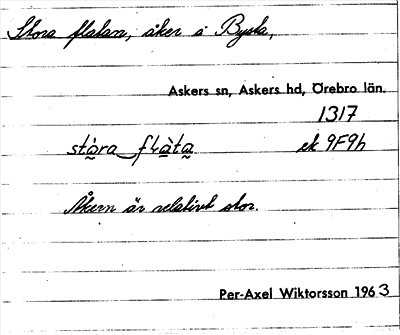 Stora flatan, åker i Bysta,
Askers sn, Askers hd, Örebro län.
1317
stàra flàta ek 9F9h
Åkern är relativt stor.
Per-Axel Wiktorsson 1963